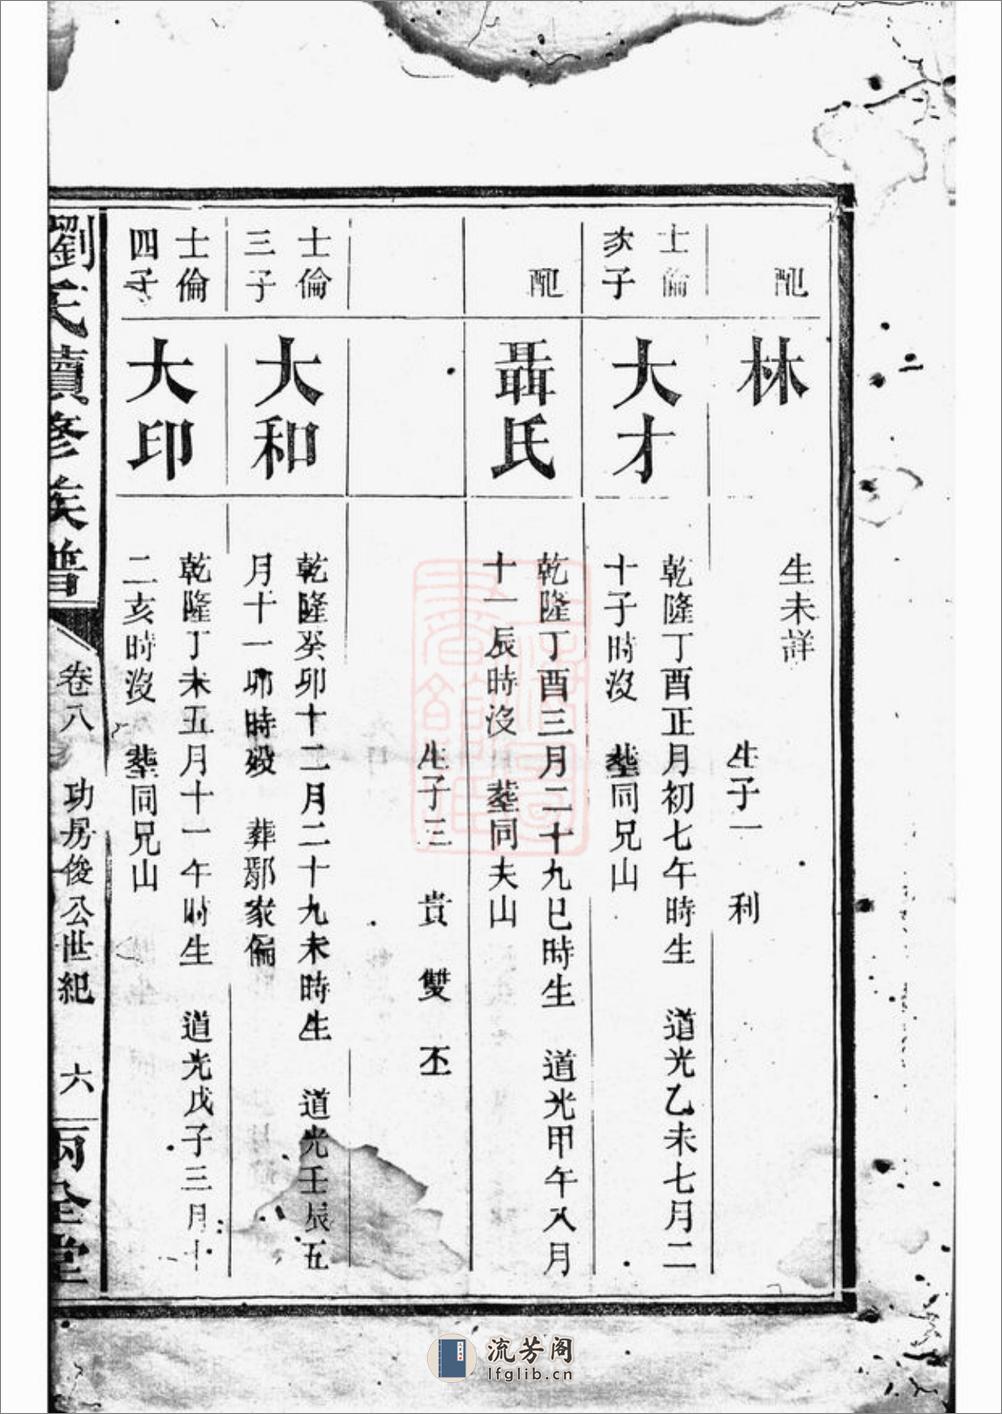 配
林
生未詳
生子一 利
士倫
次子
大才
乾隆丁酉正月初七午時生 道光乙未七月二
十子時沒 塟同兄山
配
聶氏
乾隆丁酉三月二十九巳時生 道光甲午八月
十一辰時沒 塟同夫山
生子三 貴 雙 丕
士倫
三子
大和
乾隆癸卯十二月二十九未時生 道光壬辰五
月十一卯時歿 葬鄢家偏
士倫
四子
大印
乾隆丁未五月十一午時生 道光戊子三月十
二亥時沒 塟同兄山
劉氏續修族譜
卷八 功房俊公世紀 六
兩全堂
流芳阁
lfglib.cn